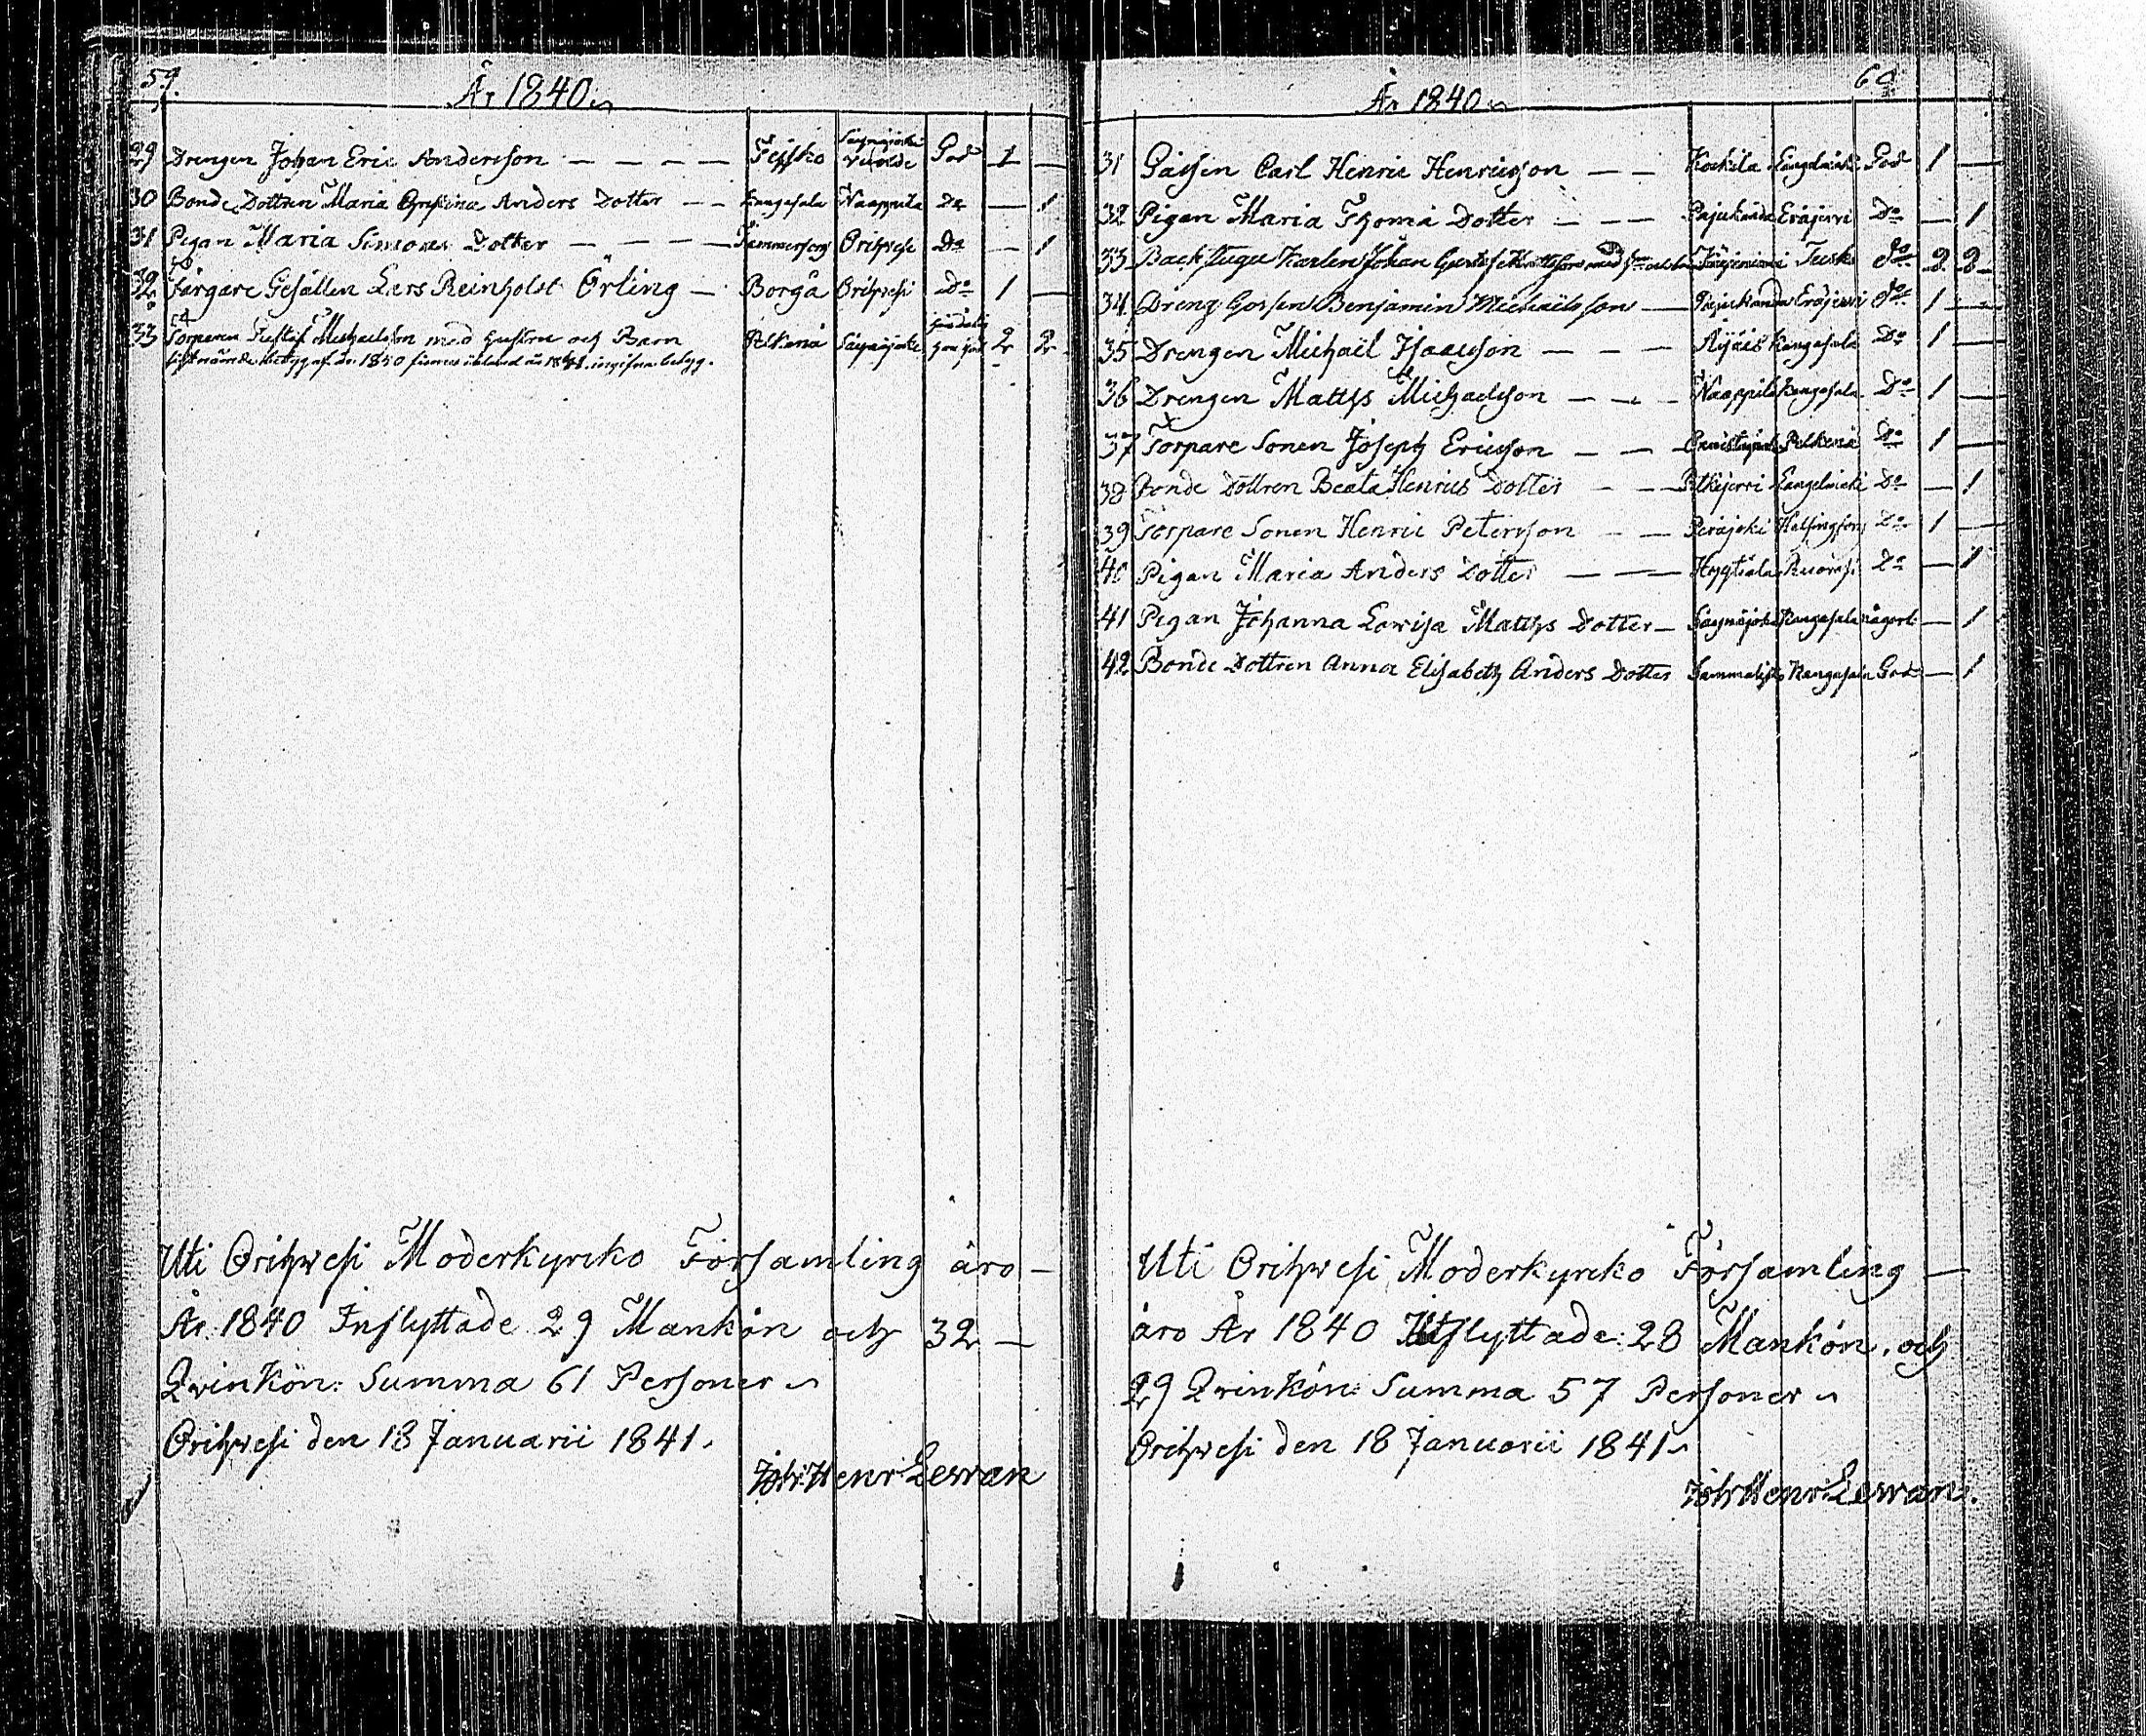 59.
År 1840
29 Drengen Johan Eric Andersson — — — — Tejsko God 1 —
30 Bonde Dottren Maria Christina Anders Dotter — — Kangasala Naappila Do — 1
31 Pigan Maria Simons Dotter — — — — Tammerfors Orihvesi Do — 1
32 Färgare Gesällen Lars Reinholdt Örling — Borgå Orihvesi Do 1 —
33 Torparen Gustaf Michaelsson med hustru och Barn Pelkenä Säynäjoki 2 2
Uti Orihvesi Moderkyrko Församling äro —
År 1840 Inflyttade 29 Mankön och 32 —
Qvinkön: Summa 61 Personer
Orihvesi den 18 Januarii 1841.
Joh: Henr: Lewan
60
År 1840
31 Gåssen Carl Henric Henricsson — — Kockila Längelmäki God 1 —
32 Pigan Maria Thoma Dotter — — — Pajukanda Eräjervi Do — 1
33 Backstugu Karlen Johan Gustaf Do 2 2
34 Dreng Gossen Benjamin Michaelsson — Pajukanda Eräjervi Do 1 —
35 Drengen Michaël Isacsson — — — Kangasala Do 1 —
36 Drengen Matths Michaelsson — — — Naappila Kangasala Do 1 —
37 Torpare Sonen Joseph Ericsson — — Pelkenä Do 1 —
38 Bonde Dottren Beata Henrics Dotter — — Pitkäjervi Längelmäki Do — 1
39 Torpare Sonen Henric Petersson — — Peräjoki Helsingfors Do 1 —
40 Pigan Maria Anders Dotter — — — Ruovesi Do — 1
41 Pigan Johanna Lovisa Matths Dotter — Säynäjoki Kangasala — 1
42 Bonde Dottren Anna Elisabeth Anders Dotter Kangasala God — 1
Uti Orihvesi Moderkyrko Församling —
äro År 1840 Utflyttade: 28 Mankön, och
29 Qvinkön: Summa 57 Personer
Orihvesi den 18 Januarii 1841
Joh: Henr: Lewan.